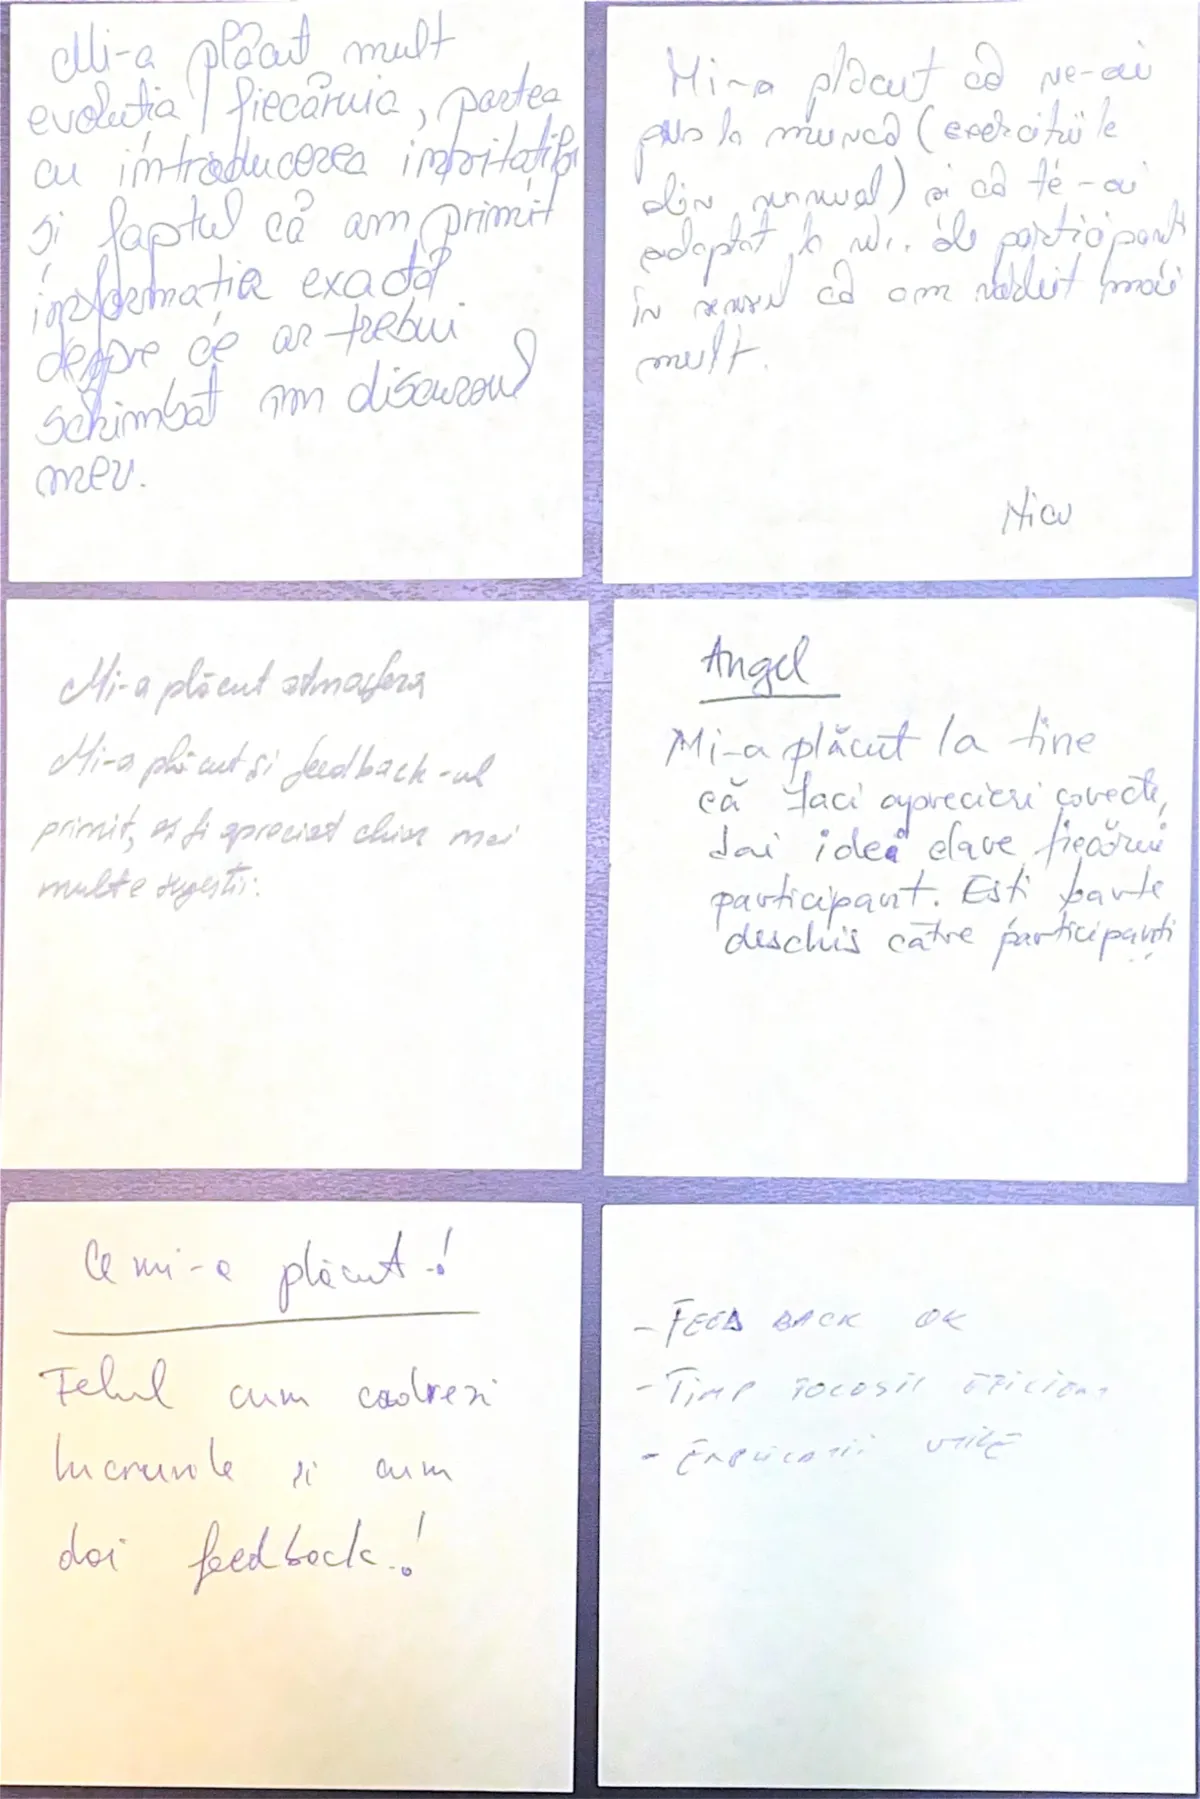 Mi-a plăcut mult
evoluția fiecăruia, partea
cu introducerea
și faptul că am primit
informația exactă
despre ce ar trebui
schimbat în discursul
meu.
Mi-a plăcut că ne-ai
pus la muncă (exercițiile
din manual) și că te-ai
adaptat la de participanți
în sensul că am vorbit mai
mult.
Nicu
Mi-a plăcut atmosfera
Mi-a plăcut și feedback-ul
primit, aș fi apreciat chiar mai
multe sugestii.
Angel
Mi-a plăcut la tine
că faci aprecieri corecte,
dai idei clare fiecărui
participant. Ești foarte
deschis către participanți
Ce mi-a plăcut!
Felul cum cadrezi
lucrurile si cum
dai feedback!
- FEED BACK OK
- TIMP FOLOSIT EFICIENT
- EXPLICATII UTILE